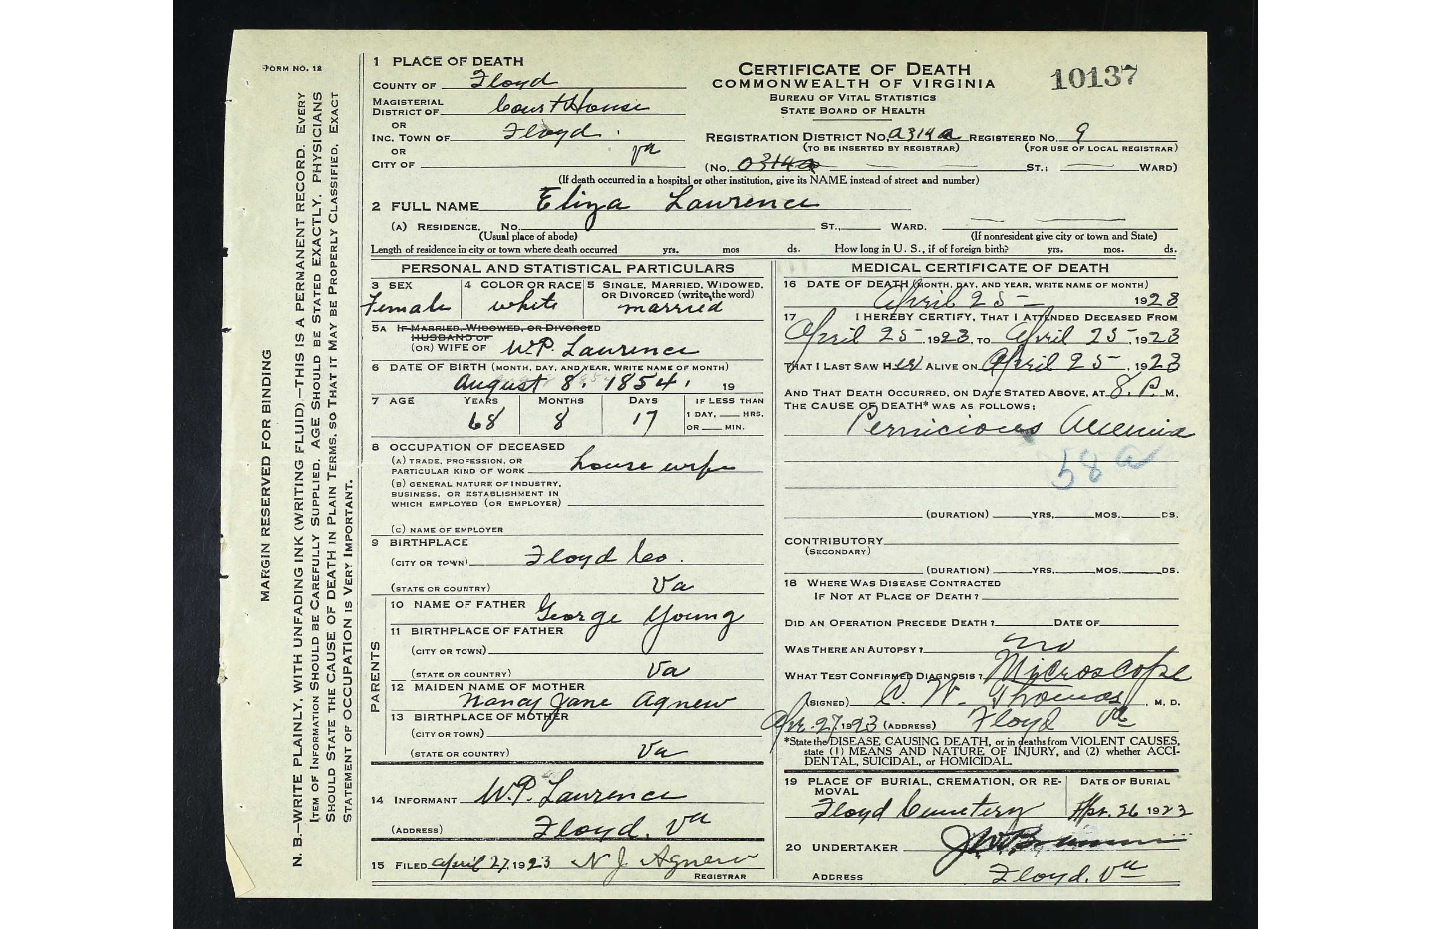 FORM NO. 12
MARGIN RESERVED FOR BINDING
N. B.—WRITE PLAINLY, WITH UNFADING INK (WRITING FLUID).—THIS IS A PERMANENT RECORD. EVERY
ITEM OF INFORMATION SHOULD BE CAREFULLY SUPPLIED. AGE SHOULD BE STATED EXACTLY. PHYSICIANS
SHOULD STATE THE CAUSE OF DEATH IN PLAIN TERMS, SO THAT IT MAY BE PROPERLY CLASSIFIED. EXACT
STATEMENT OF OCCUPATION IS VERY IMPORTANT.
1 PLACE OF DEATH
COUNTY OF Floyd
MAGISTERIAL
DISTRICT OF Court House
OR
INC. TOWN OF Floyd.
OR
CITY OF Va
CERTIFICATE OF DEATH
COMMONWEALTH OF VIRGINIA
BUREAU OF VITAL STATISTICS
STATE BOARD OF HEALTH
10137
REGISTRATION DISTRICT NO. 0314a REGISTERED NO. 9
(TO BE INSERTED BY REGISTRAR) (FOR USE OF LOCAL REGISTRAR)
(NO. 0314a ST.; WARD)
(If death occurred in a hospital or other institution, give its NAME instead of street and number)
2 FULL NAME Eliza Lawrence
(A) RESIDENCE. NO. ST., WARD.
(Usual place of abode) (If nonresident give city or town and State)
Length of residence in city or town where death occurred yrs. mos ds. How long in U. S., if of foreign birth? yrs. mos. ds.
PERSONAL AND STATISTICAL PARTICULARS
3 SEX 4 COLOR OR RACE 5 SINGLE, MARRIED, WIDOWED,
OR DIVORCED (write the word)
Female white married
5A IF MARRIED, WIDOWED, OR DIVORCED
HUSBAND OF
(OR) WIFE OF W.P. Lawrence
6 DATE OF BIRTH (MONTH, DAY, AND YEAR, WRITE NAME OF MONTH)
August 8. 1854. 19
7 AGE YEARS MONTHS DAYS IF LESS THAN
1 DAY, HRS.
OR MIN.
68 8 17
8 OCCUPATION OF DECEASED
(A) TRADE, PROFESSION, OR
PARTICULAR KIND OF WORK house wife
(B) GENERAL NATURE OF INDUSTRY,
BUSINESS, OR ESTABLISHMENT IN
WHICH EMPLOYED (OR EMPLOYER)
(C) NAME OF EMPLOYER
9 BIRTHPLACE
(CITY OR TOWN) Floyd Co.
(STATE OR COUNTRY) Va
PARENTS
10 NAME OF FATHER George Young
11 BIRTHPLACE OF FATHER
(CITY OR TOWN)
(STATE OR COUNTRY) Va
12 MAIDEN NAME OF MOTHER
Nancy Jane Agnew
13 BIRTHPLACE OF MOTHER
(CITY OR TOWN)
(STATE OR COUNTRY) Va
14 INFORMANT W.P. Lawrence
(ADDRESS) Floyd. Va
15 FILED April 27, 1923 N J. Agnew
REGISTRAR
MEDICAL CERTIFICATE OF DEATH
16 DATE OF DEATH (MONTH, DAY, AND YEAR, WRITE NAME OF MONTH)
April 25 - 1923
17 I HEREBY CERTIFY, THAT I ATTENDED DECEASED FROM
April 25, 1923, TO April 25, 1923
THAT I LAST SAW HER ALIVE ON April 25, 1923
AND THAT DEATH OCCURRED, ON DATE STATED ABOVE, AT 8. P. M.
THE CAUSE OF DEATH* WAS AS FOLLOWS:
Pernicious Anemia
58 a
(DURATION) YRS. MOS. DS.
CONTRIBUTORY
(SECONDARY)
(DURATION) YRS. MOS. DS.
18 WHERE WAS DISEASE CONTRACTED
IF NOT AT PLACE OF DEATH?
DID AN OPERATION PRECEDE DEATH? DATE OF
WAS THERE AN AUTOPSY? no
WHAT TEST CONFIRMED DIAGNOSIS? Microscope
(SIGNED) C. W. Thomas, M. D.
Apr. 27, 1923 (ADDRESS) Floyd Va
*State the DISEASE CAUSING DEATH, or in deaths from VIOLENT CAUSES,
state (1) MEANS AND NATURE OF INJURY, and (2) whether ACCI-
DENTAL, SUICIDAL, or HOMICIDAL.
19 PLACE OF BURIAL, CREMATION, OR RE- DATE OF BURIAL
MOVAL
Floyd Cemetery Apr. 26 1923
20 UNDERTAKER
ADDRESS Floyd. Va